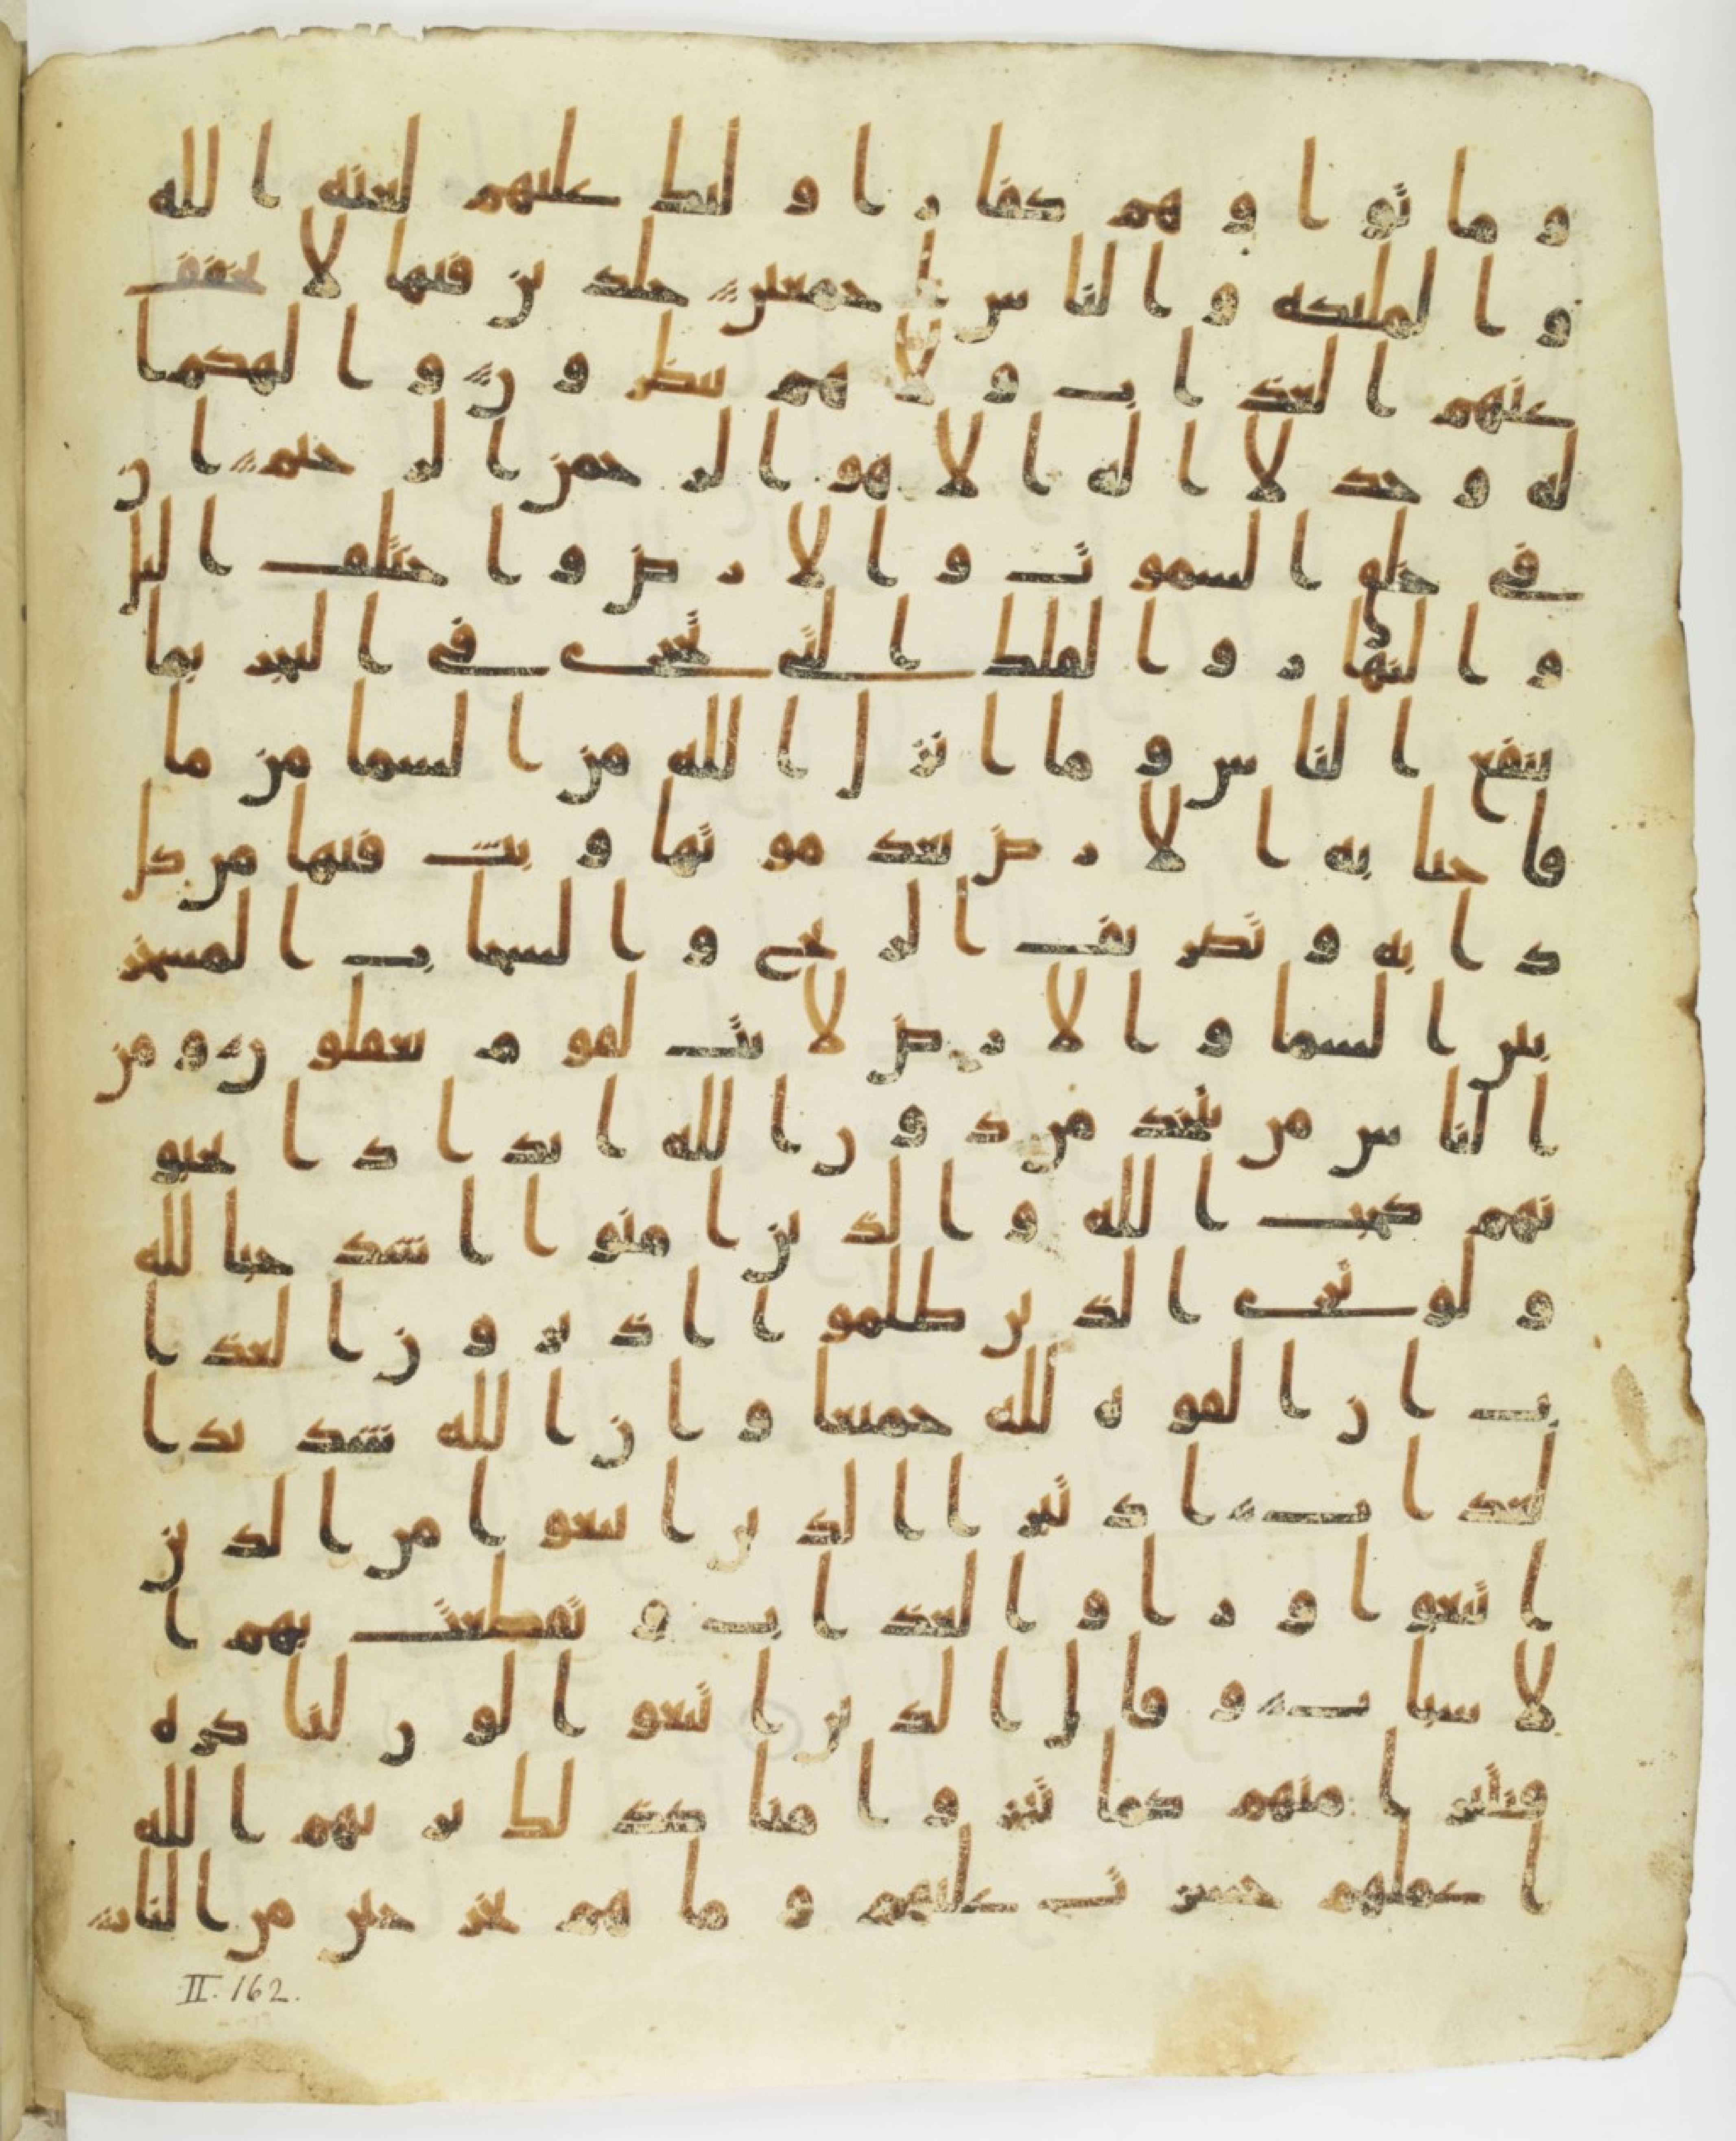 وماتوا وهم كفار اولئك عليهم لعنة الله
والملئكة والناس اجمعين خلدين فيها لا يخفف
عنهم العذاب ولا هم ينظرون والهكم ا
له وحد لا اله الا هو الرحمن الرحيم ان
في خلق السموت والارض واختلف اليل
والنهار والفلك التي تجري في البحر بما
ينفع الناس وما انزل الله من السما من ما
فاحيا به الارض بعد موتها وبث فيها من كل
دابة وتصريف الريح والسحاب المسخر
بين السما والارض لايت لقوم يعقلون ومن
الناس من يتخذ من دون الله اندادا يحبو
نهم كحب الله والذين امنوا اشد حبا لله
ولو ترى الذين ظلموا اذ يرون العذا
ب ان القوة لله جميعا وان الله شديد ا
لعذاب اذ تبرا الذين اتبعوا من الذين
اتبعوا وراوا العذاب وتقطعت بهم ا
لاسباب وقال الذين اتبعوا لو ان لنا كرة
فنتبرا منهم كما تبروا منا كذلك يريهم الله
اعملهم حسرت عليهم وما هم بخرجين من النار
II. 162.